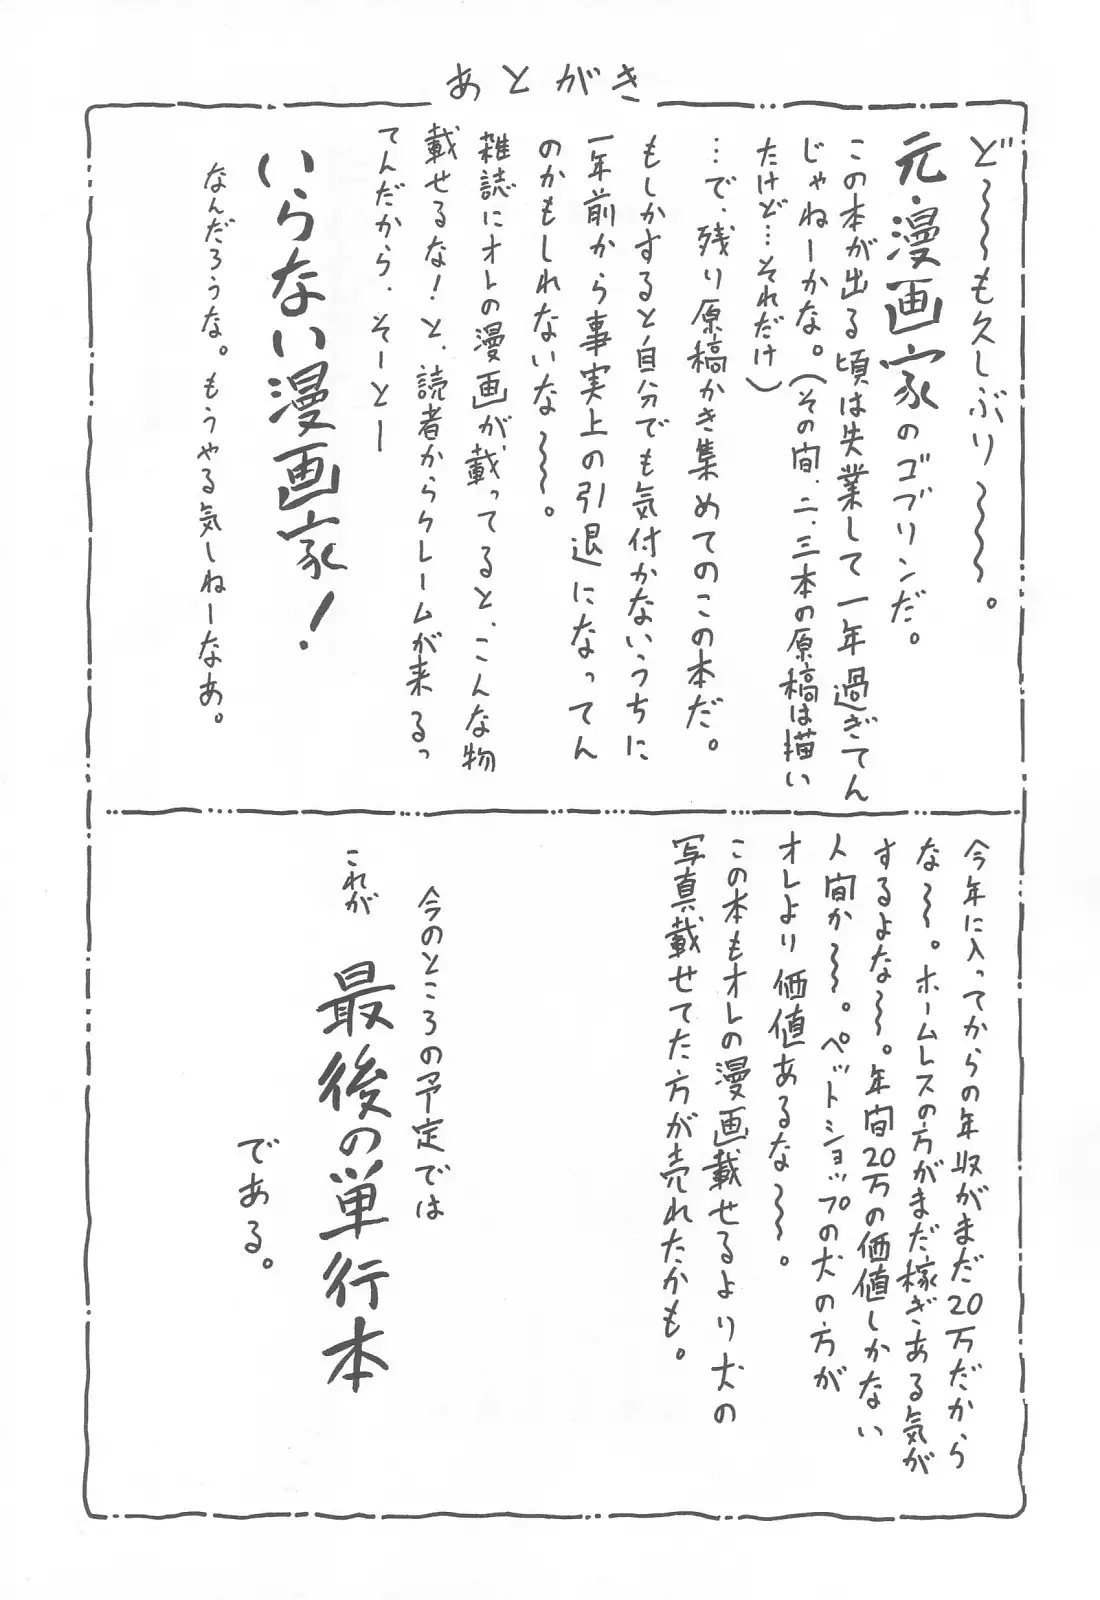 あとがき
ど〜〜も久しぶり〜〜。
元・漫画家のゴブリンだ。
この本が出る頃は失業して一年過ぎてん
じゃねーかな。(その間、二、三本の原稿は描い
たけど…それだけ)
…で、残り原稿かき集めてのこの本だ。
もしかすると自分でも気付かないうちに
一年前から事実上の引退になってん
のかもしれないな〜〜。
雑誌にオレの漫画が、載ってると、こんな物
載せるな!と、読者からクレームが来るっ
てんだから、そーとー
いらない漫画家!
なんだろうな。もうやる気しねーなあ。
今年に入ってからの年収がまだ20万だから
な〜〜。ホームレスの方がまだ稼ぎある気が
するよな〜〜。年間20万の価値しかない
人間か〜〜。ペットショップの犬の方が
オレより価値あるな〜〜。
この本もオレの漫画載せるより犬の
写真載せてた方が売れたかも。
今のところの予定では
これが 最後の単行本
である。